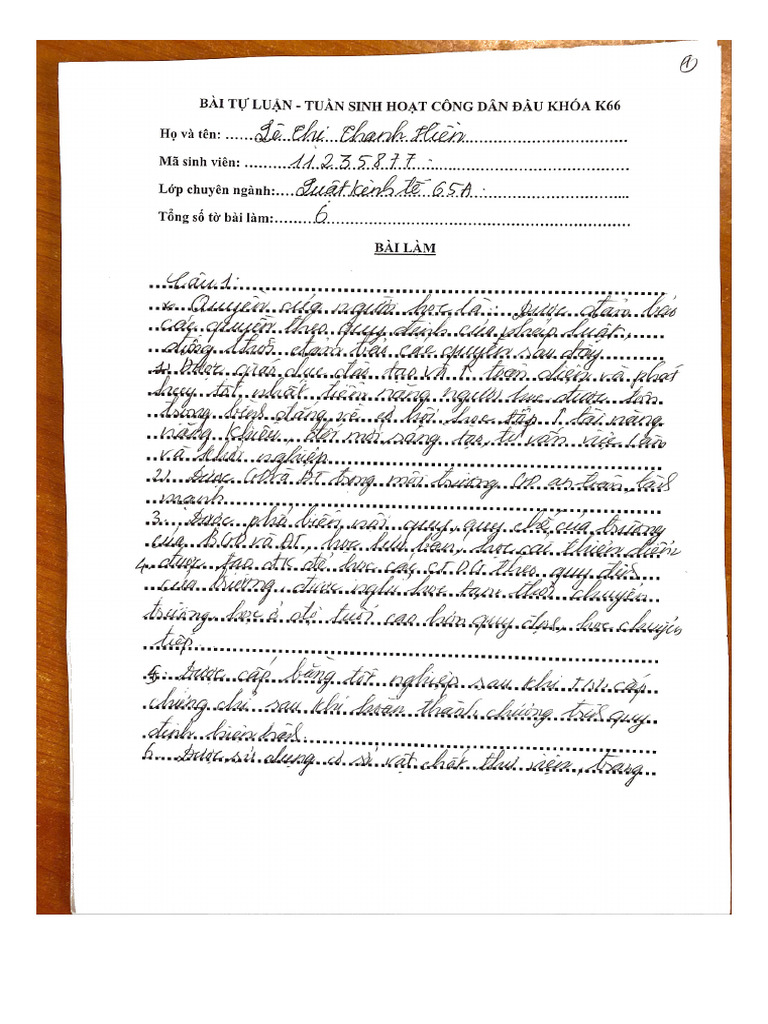 1
BÀI TỰ LUẬN - TUẦN SINH HOẠT CÔNG DÂN ĐẦU KHÓA K66
Họ và tên: Lê Thị Thanh Hiền
Mã sinh viên: 11235877
Lớp chuyên ngành: Luật kinh tế 65A
Tổng số tờ bài làm: 6
BÀI LÀM
Câu 1:
* Quyền của người học là: Được đảm bảo
các quyền theo quy định của pháp luật,
đồng thời đảm bảo các quyền sau đây
1. Được giáo dục đào tạo và P. toàn diện và phát
huy tốt nhất tiềm năng người học được tôn
trọng bình đẳng về cơ hội học tập P tài năng
năng khiếu, đổi mới sáng tạo, tư vấn việc làm
và khởi nghiệp
2. Được GD và ĐT trong môi trường GD an toàn, lành
mạnh
3. Được phổ biến nội quy, quy chế của trường
của BGD và ĐT, học lưu ban, học cải thiện điểm
4. được tạo đk để học các CTĐT theo quy định
của trường, được nghỉ học tạm thời chuyển
trường học ở độ tuổi cao hơn quy định, học chuyển
tiếp
5. Được cấp bằng tốt nghiệp sau khi TN cấp
chứng chỉ sau khi hoàn thành chương trình quy
định hiện hành
6. Được sử dụng cơ sở vật chất thư viện, trang